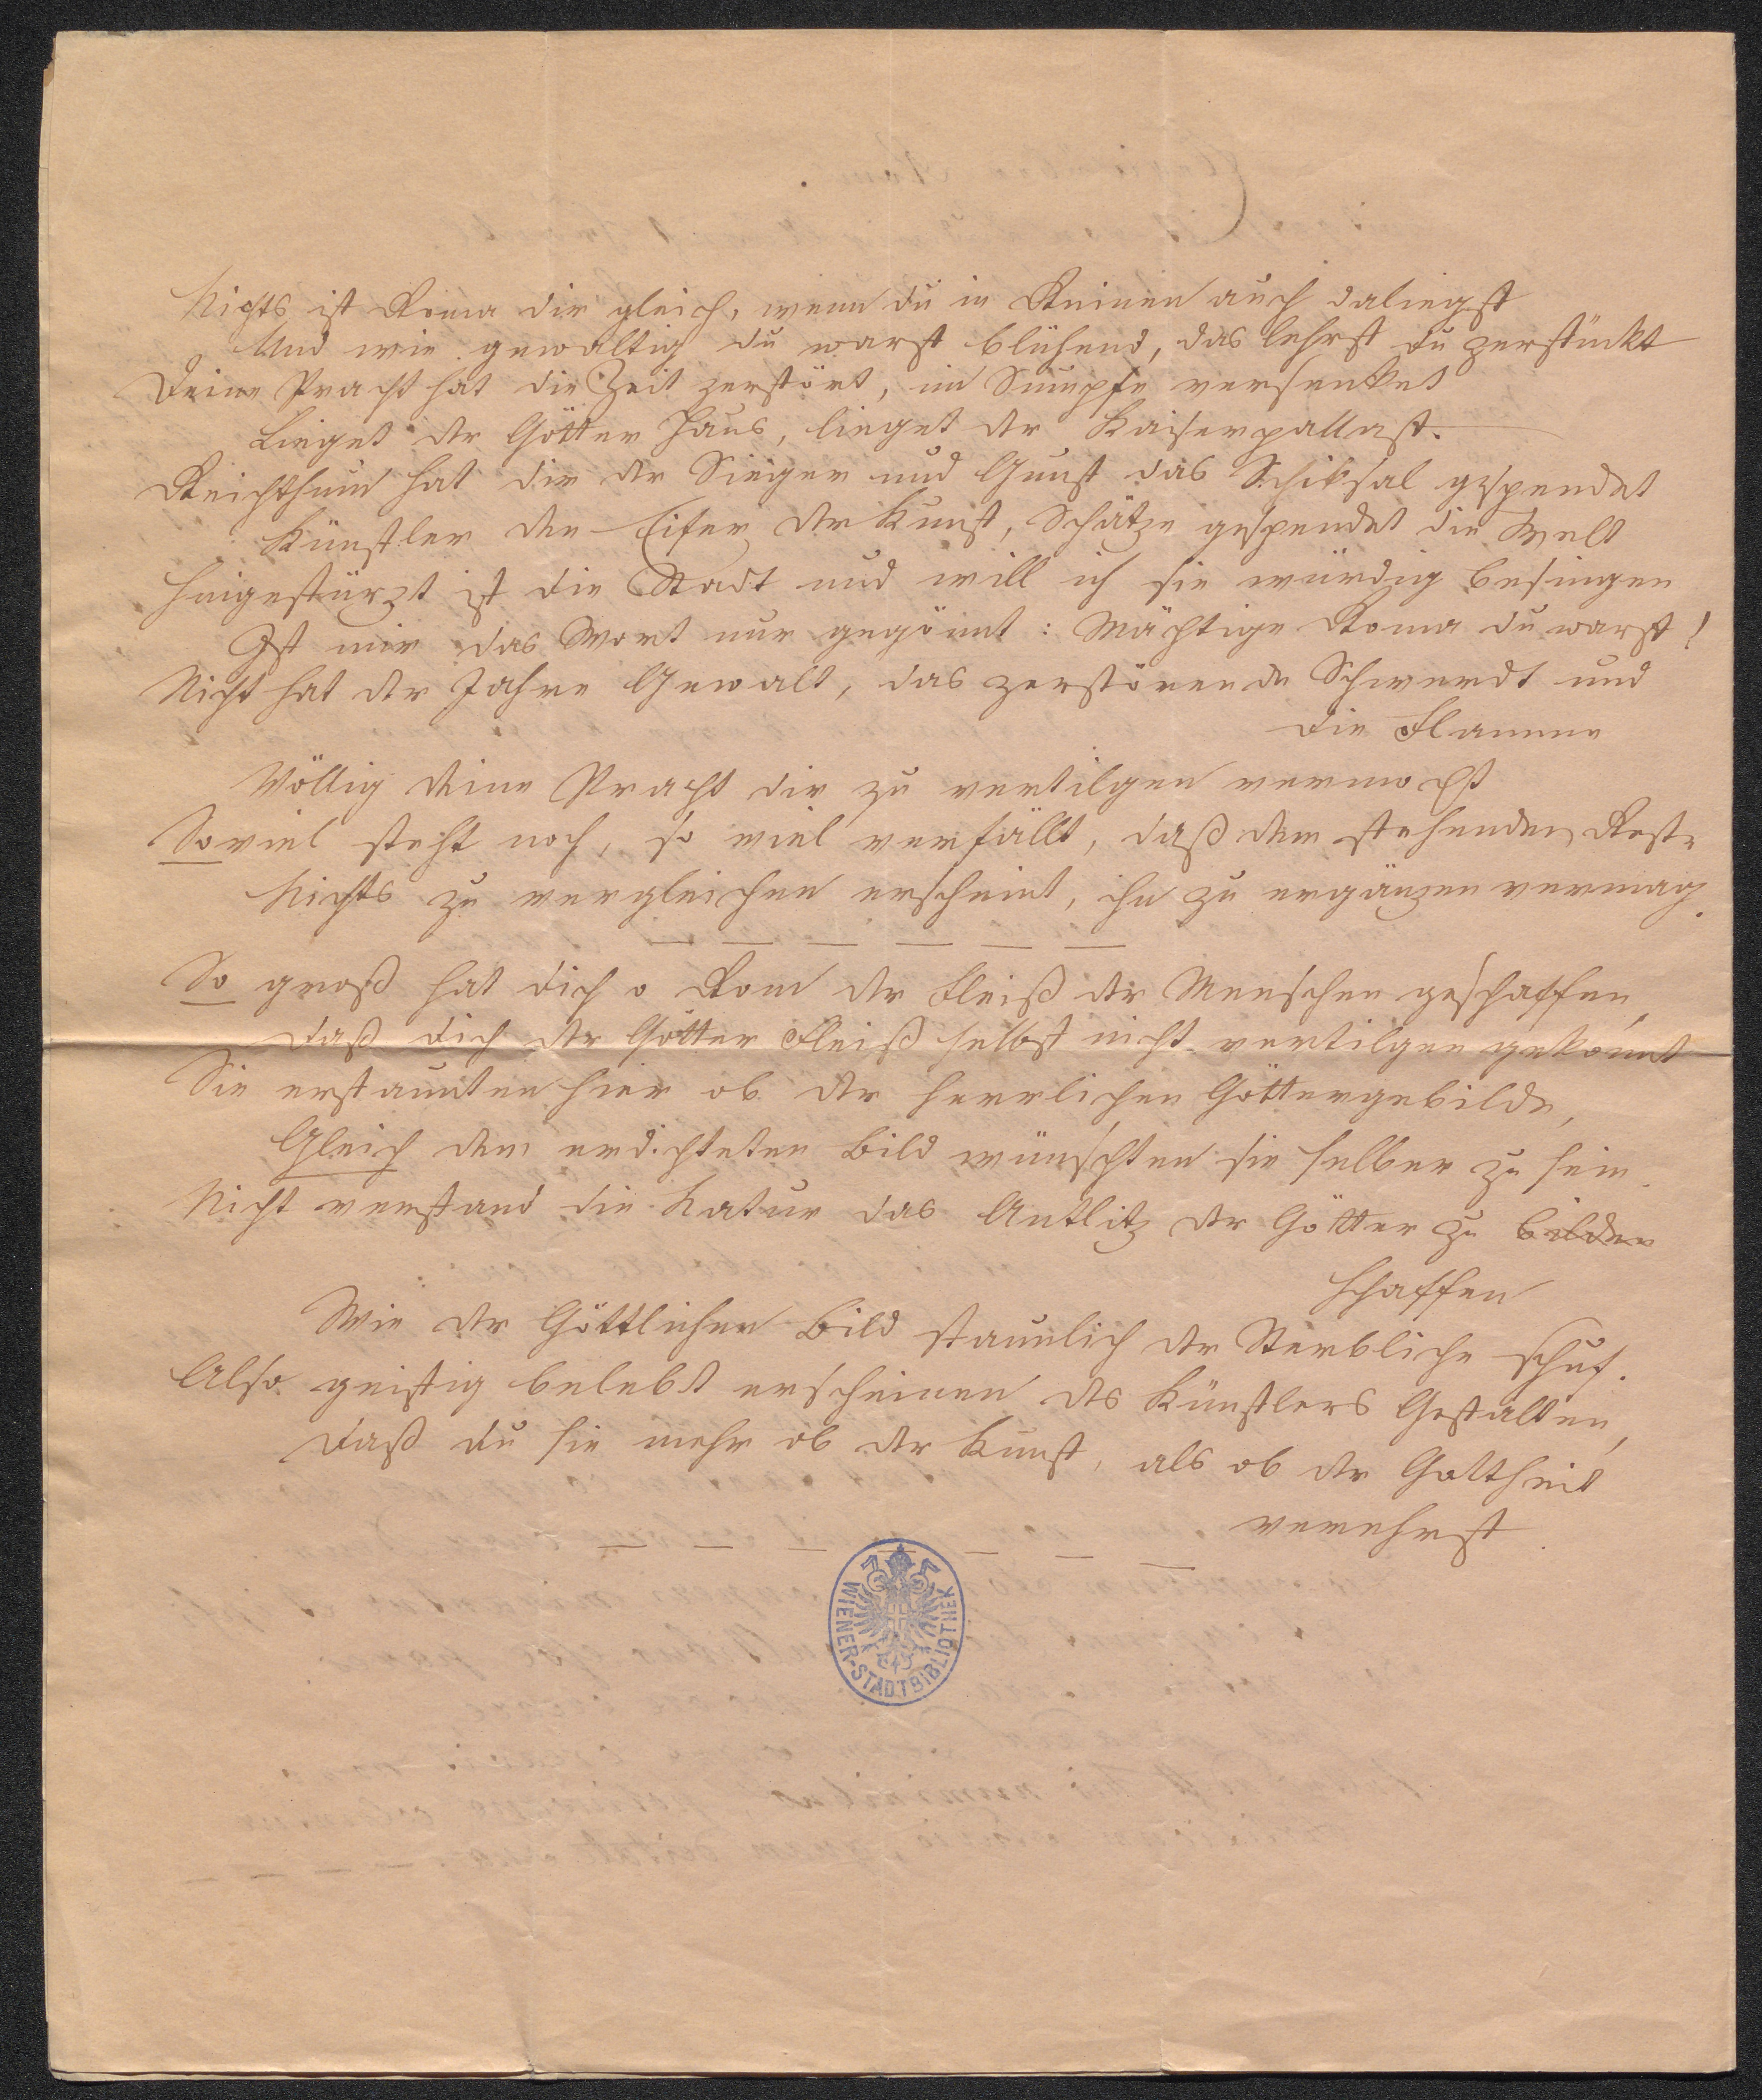 Nichts ist Roma dir gleich, wenn du in Ruinen auch daliegst
Und wie gewaltig du warst blühend, das lehrst du zerstückt
Deine Pracht hat die Zeit zerstört, im Sumpfe versenket
Lieget der Götter Haus, lieget der Kaiserpallast.
Reichthum hat dir der Sieger und Gunst das Schiksal gespendet
Künstler den Eifer der Kunst, Schätze gespendet die Welt
Hingestürzt ist die Stadt und will ich sie würdig besingen
Ist mir das Wort nur gegönnt: Mächtige Roma du warst!
Nicht hat der Jahre Gewalt, das zerstörende Schwerdt und
die Flamme
Völlig deine Pracht dir zu vertilgen vermocht
Soviel steht noch, so viel verfällt, daß dem stehenden Reste
Nichts zu vergleichen erscheint, ihn zu ergänzen vermag.
So groß hat dich o Rom der Fleiß der Menschen geschaffen,
Daß dich der Götter Fleiß selbst nicht vertilgen gekonnt
Sie erstaunten hier ob der herrlichen Göttergebilde,
Gleich dem erdichteten Bild wünschten sie selber zu sein.
Nicht verstand die Natur das Antlitz der Götter zu bilden
schaffen
Wie der Göttlichen Bild staunlich der Sterbliche schuf.
Also geistig belebt erscheinen des Künstlers Gestalten,
Daß du sie mehr ob der Kunst, als ob der Gottheit
verehrst.
WIENER-STADTBIBLIOTHEK